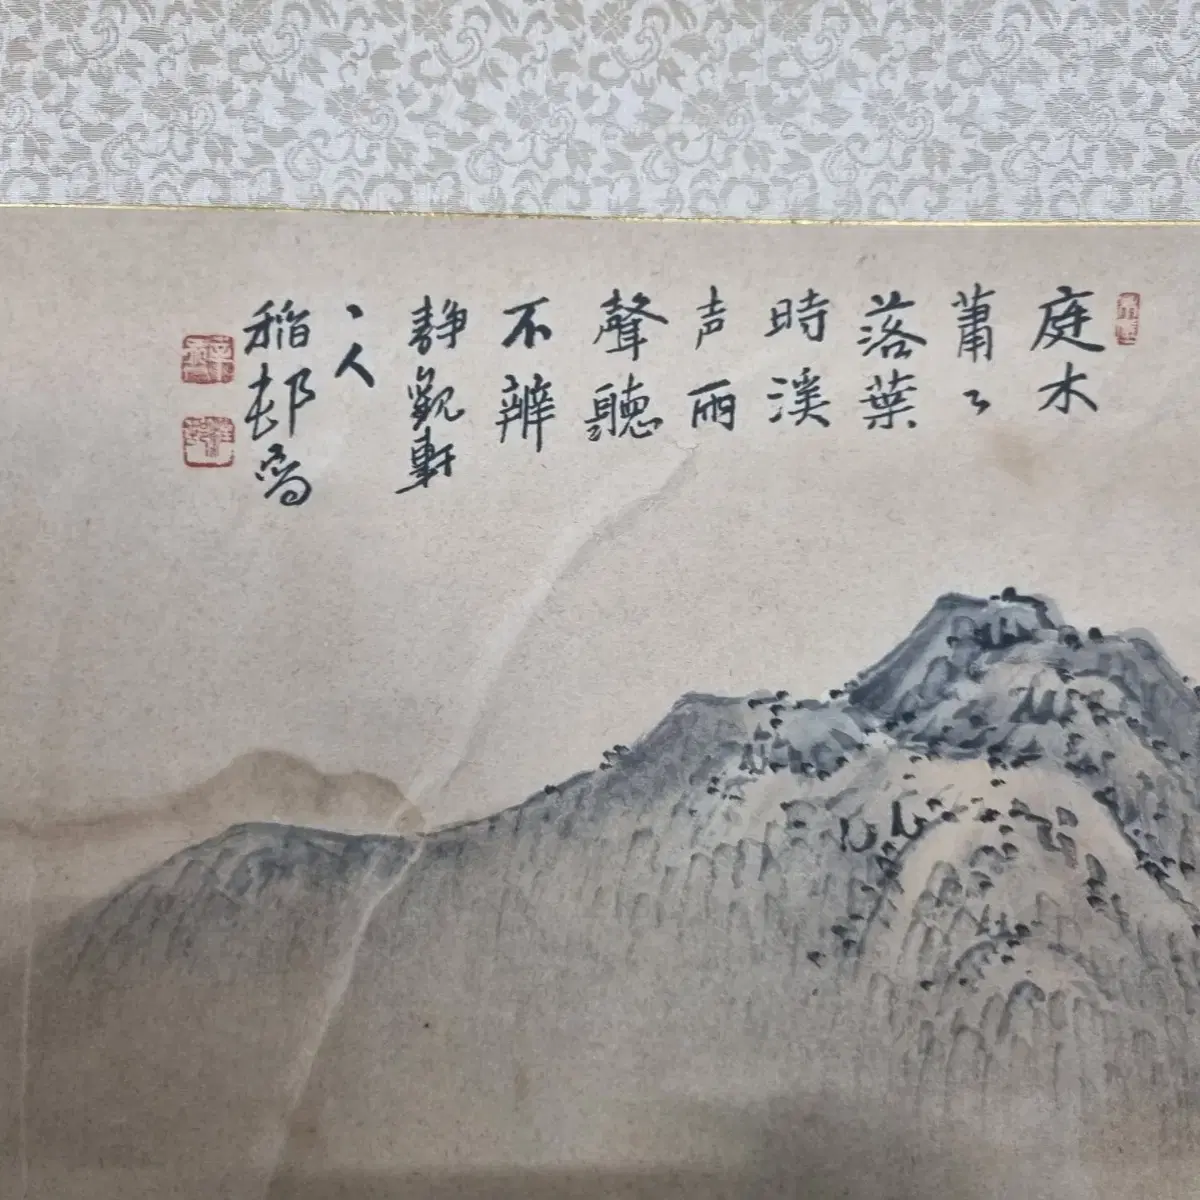 庭木
蕭〻
落葉
時溪
声雨
聲聽
不辨
静觀軒
丶人
稲邨寫